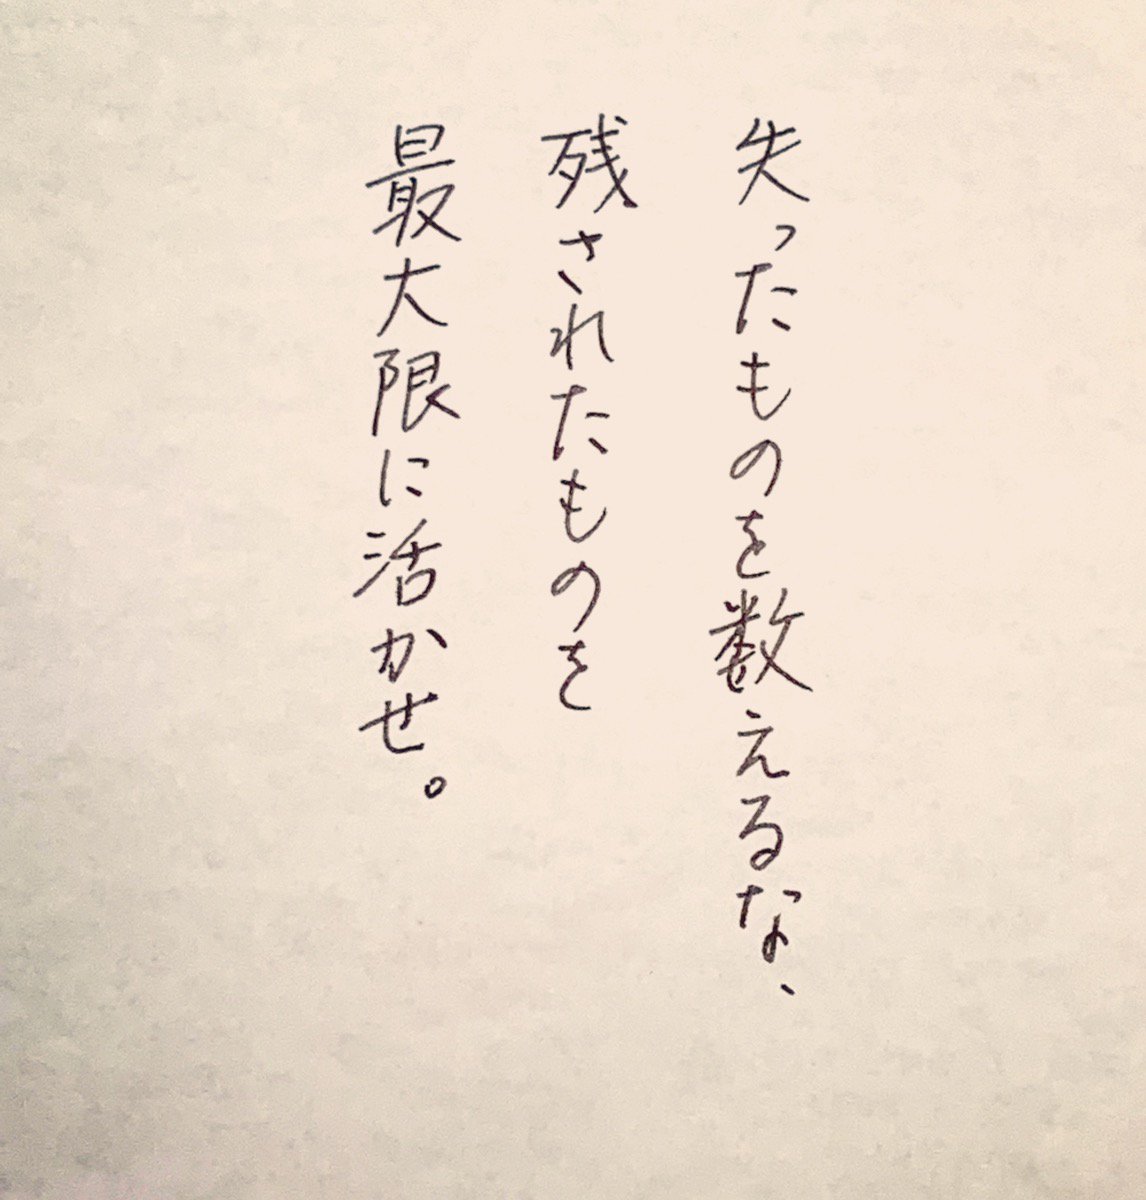 失ったものを数えるな、
残されたものを
最大限に活かせ。